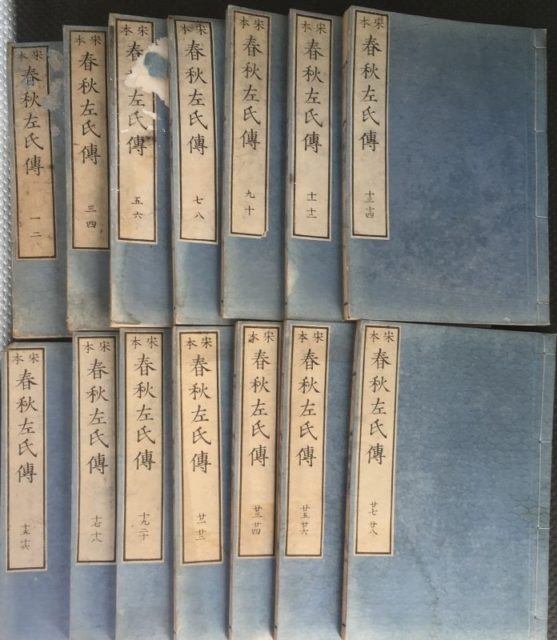 宋本
春秋左氏傳
一二
宋本
春秋左氏傳
三四
宋本
春秋左氏傳
五六
宋本
春秋左氏傳
七八
宋本
春秋左氏傳
九十
宋本
春秋左氏傳
十一十二
宋本
春秋左氏傳
十三十四
宋本
春秋左氏傳
十五十六
宋本
春秋左氏傳
十七十八
宋本
春秋左氏傳
十九二十
宋本
春秋左氏傳
廿一廿二
宋本
春秋左氏傳
廿三廿四
宋本
春秋左氏傳
廿五廿六
宋本
春秋左氏傳
廿七廿八